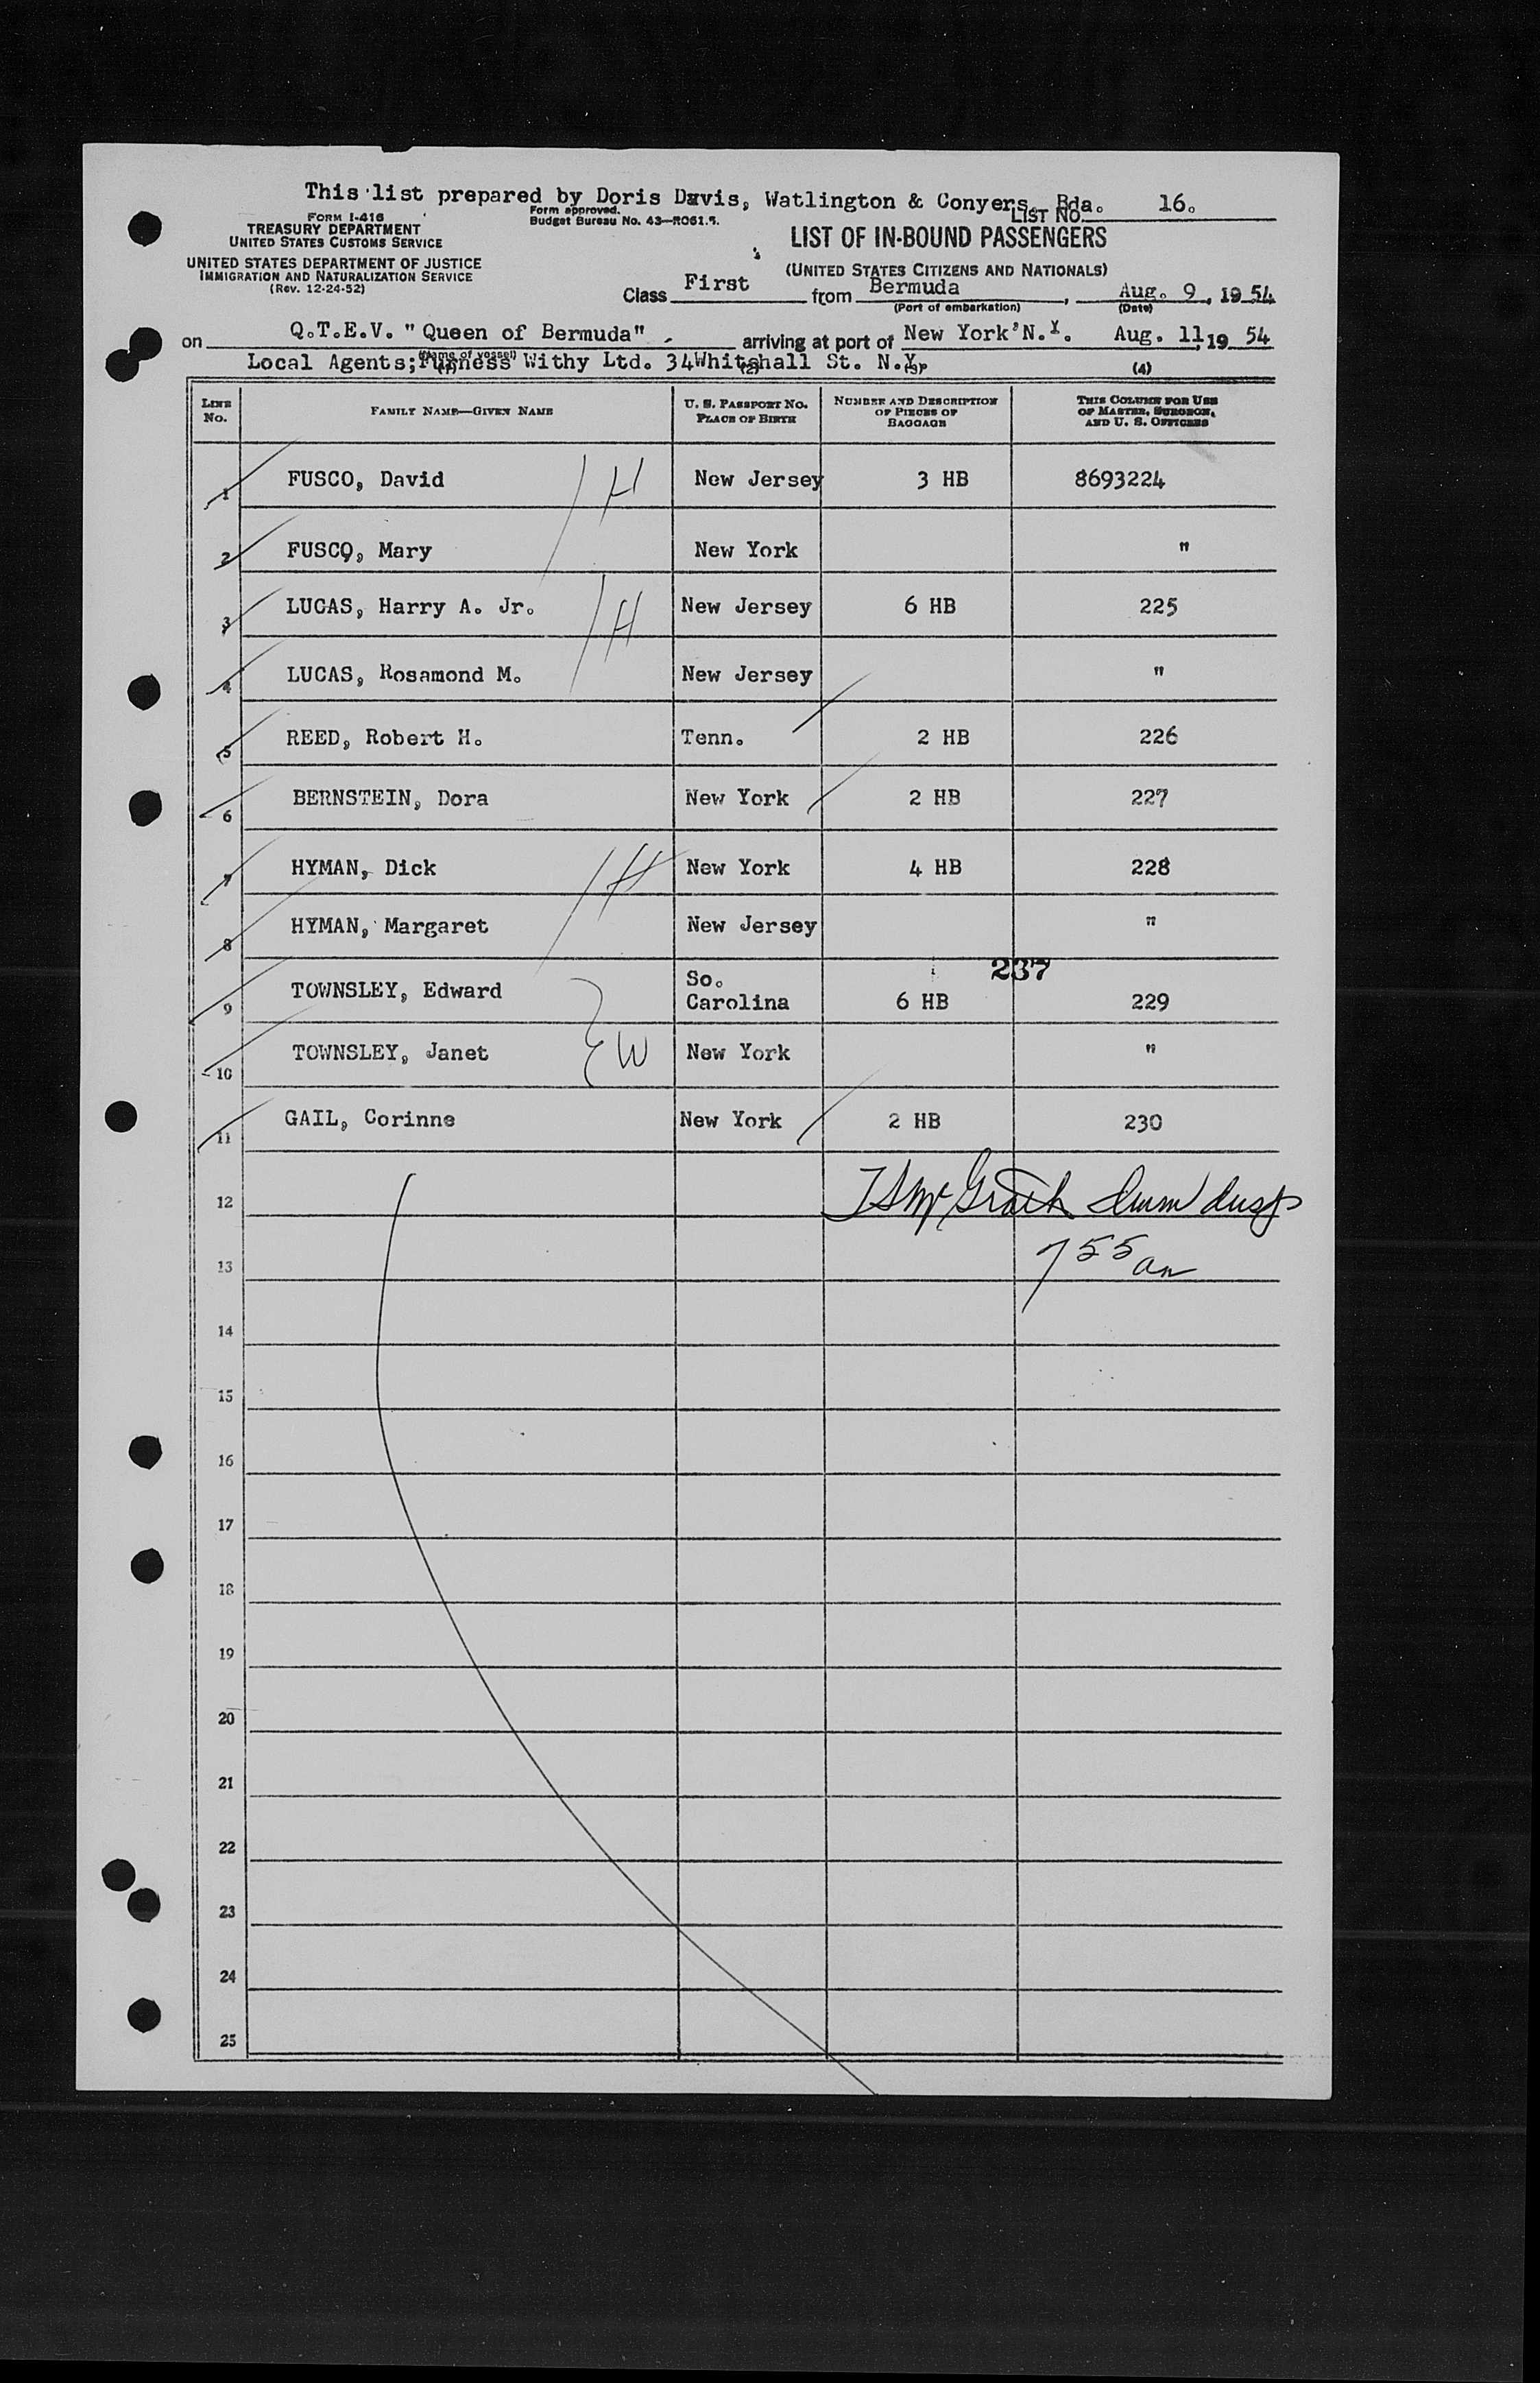 This list prepared by Doris Davis, Watlington & Conyers, Bda.
LIST No. 16.
FORM I-416
TREASURY DEPARTMENT
UNITED STATES CUSTOMS SERVICE
UNITED STATES DEPARTMENT OF JUSTICE
IMMIGRATION AND NATURALIZATION SERVICE
(Rev. 12-24-52)
Form approved.
Budget Bureau No. 43—R061.5.
LIST OF IN-BOUND PASSENGERS
(UNITED STATES CITIZENS AND NATIONALS)
Class First from Bermuda, Aug. 9, 1954
(Port of embarkation) (Date)
on Q.T.E.V. "Queen of Bermuda" arriving at port of New York, N.Y. Aug. 11, 19 54
(Name of vessel)
Local Agents; Furness Withy Ltd. 34 Whitehall St. N.Y.
(1) (2) (3) (4)
LINE No. FAMILY NAME—GIVEN NAME U. S. PASSPORT NO. PLACE OF BIRTH NUMBER AND DESCRIPTION OF PIECES OF BAGGAGE THIS COLUMN FOR USE OF MASTER, SURGEON, AND U. S. OFFICERS
1 FUSCO, David H New Jersey 3 HB 8693224
2 FUSCO, Mary New York "
3 LUCAS, Harry A. Jr. H New Jersey 6 HB 225
4 LUCAS, Rosamond M. New Jersey "
5 REED, Robert H. Tenn. 2 HB 226
6 BERNSTEIN, Dora New York 2 HB 227
7 HYMAN, Dick H New York 4 HB 228
8 HYMAN, Margaret New Jersey "
237
9 TOWNSLEY, Edward So. Carolina 6 HB 229
10 TOWNSLEY, Janet W New York "
11 GAIL, Corinne New York 2 HB 230
12 McGrath
13 755 am
14
15
16
17
18
19
20
21
22
23
24
25